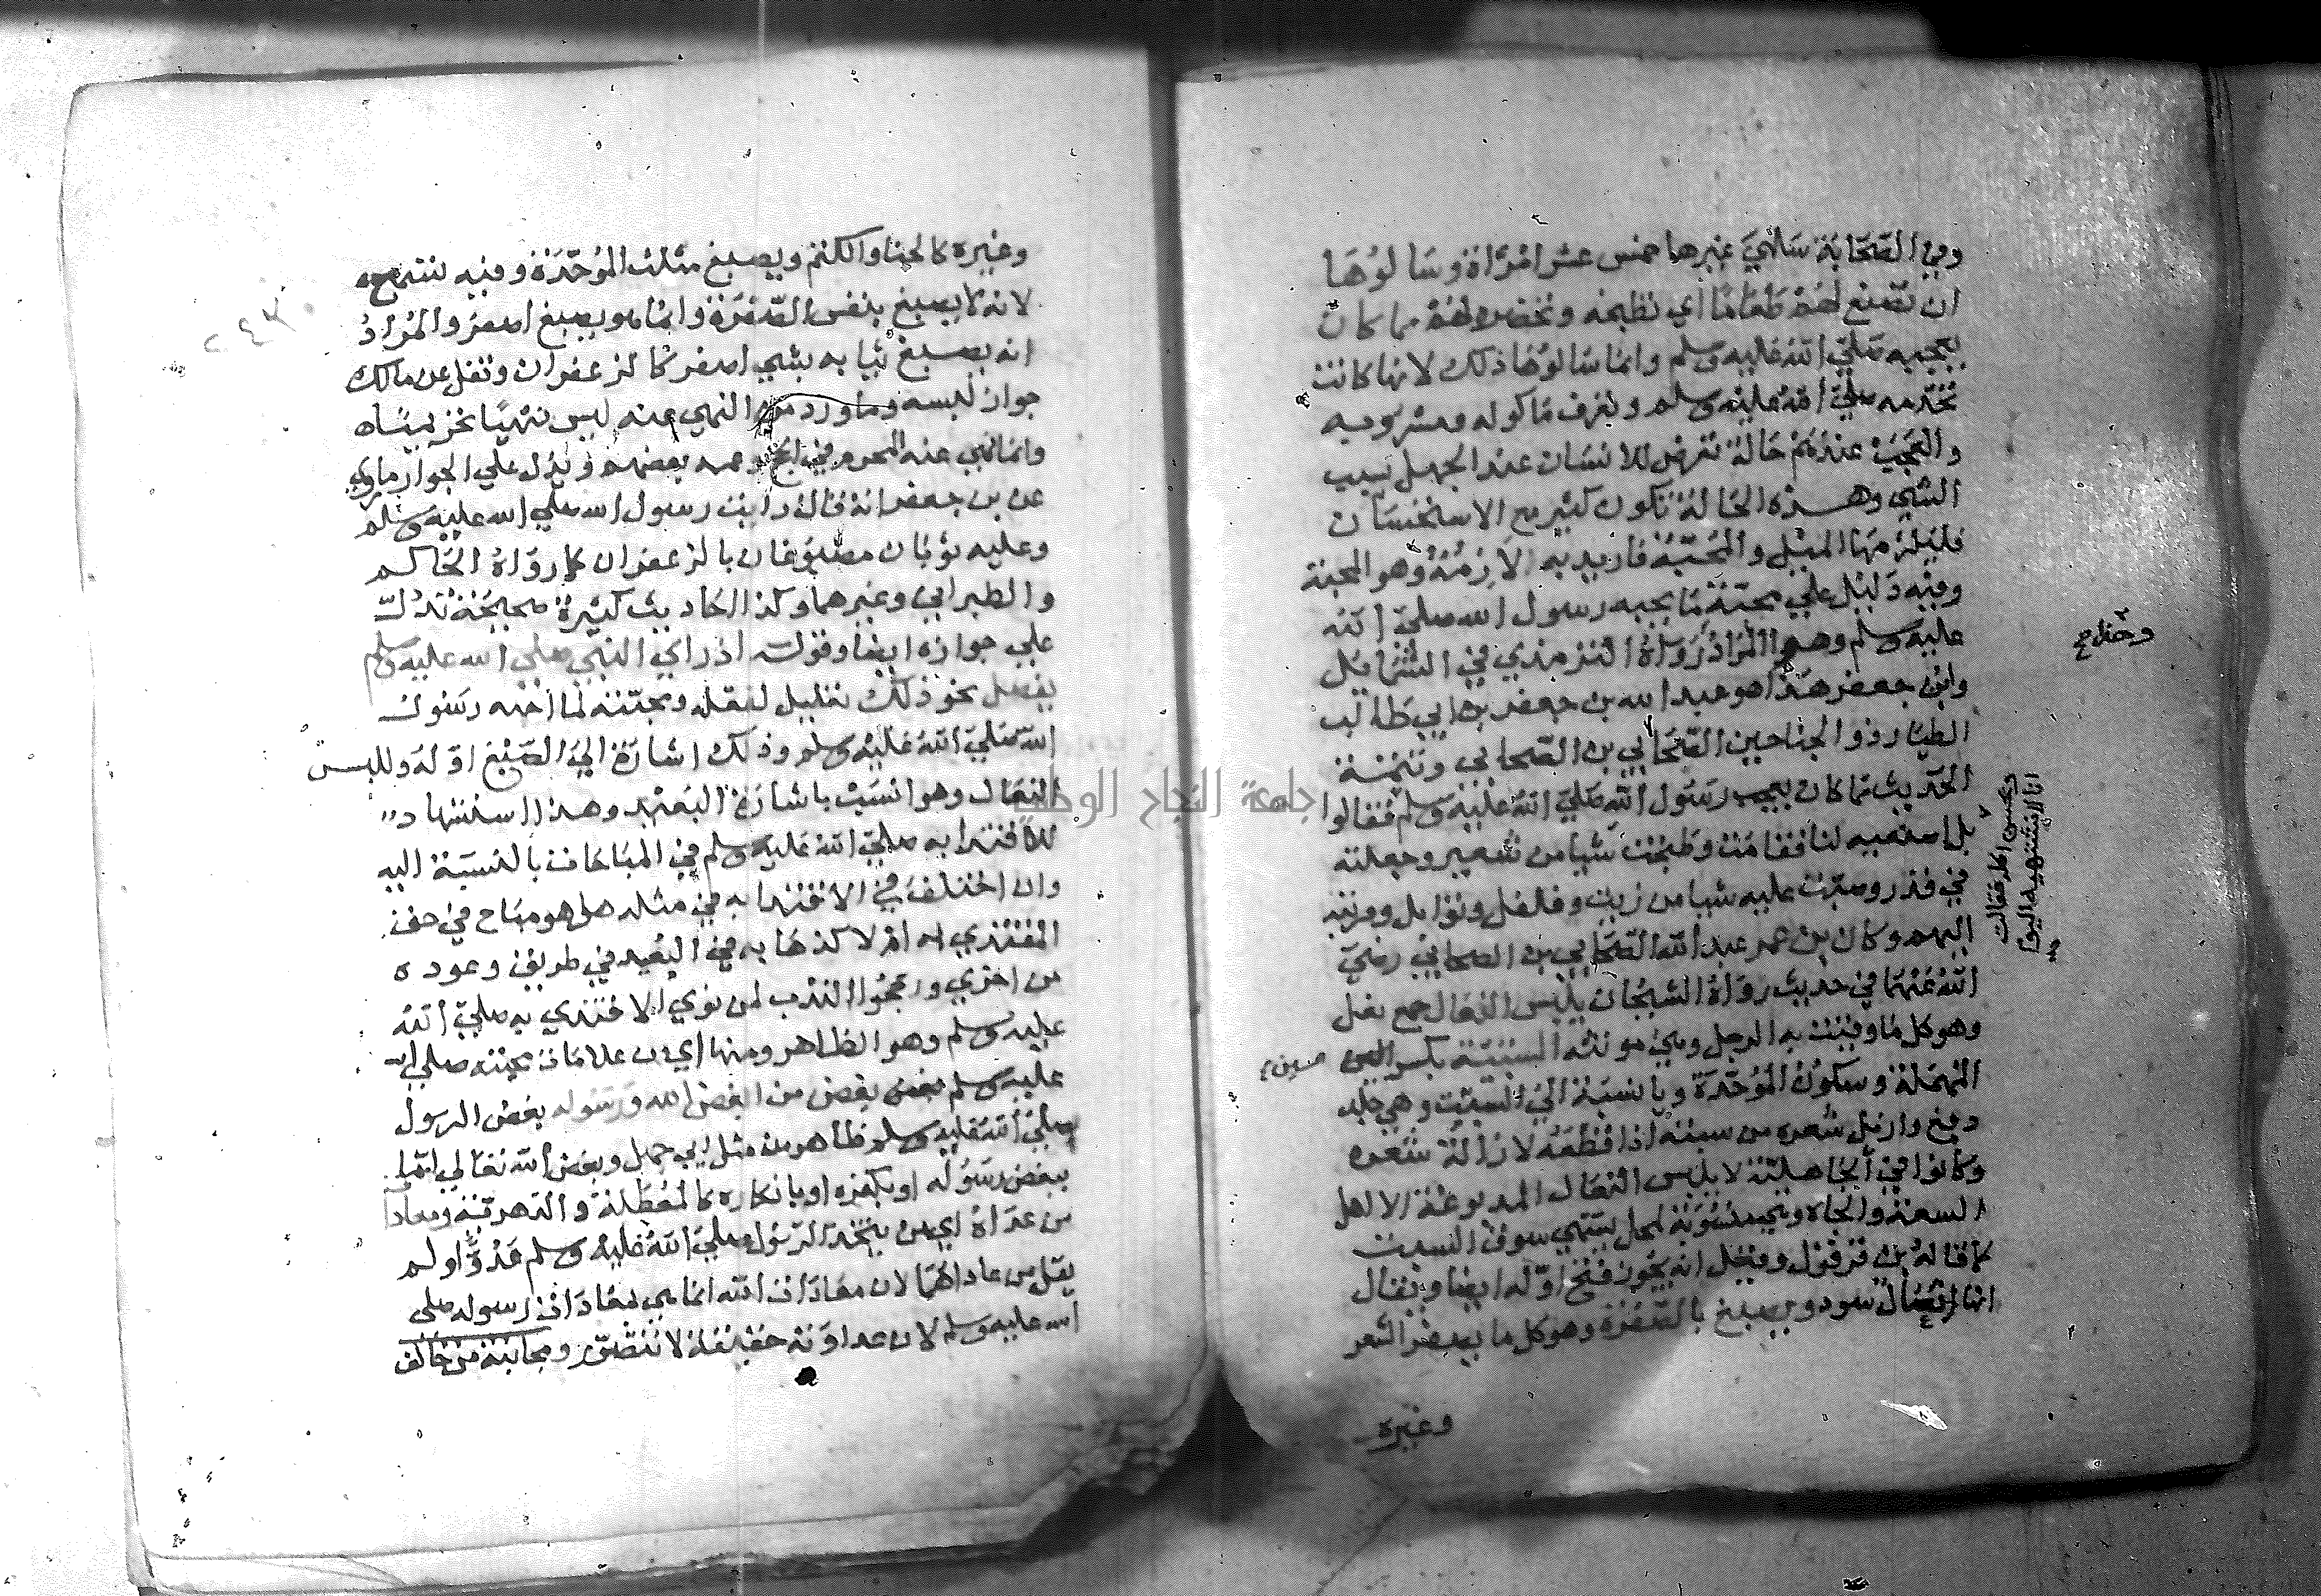 وفي الصحابة سلمي غيرها خمس عشر امراة وسالوها
ان تصنع لهم طعاما اي تطبخه وتحضره لهم مما كان
يعجبه صلي الله عليه وسلم وانما سالوها ذلك لانها كانت
تخدمه صلي الله عليه وسلم وتعرف ماكوله ومشروبه
والعجب عندهم حالة تعرض للانسان عند الجهل بسبب
الشي وهذه الحالة تكون كثير مع الاستحسان
فليلزمها الميل والمحبة فاريد به لازمه وهو المحبة
وفيه دليل علي محبة ما يحبه رسول الله صلي الله
عليه وسلم وهو المراد رواه الترمذي في الشمايل
وابن جعفر هذا هو عبد الله بن جعفر بن ابي طالب
الطيار ذو الجناحين الصحابي بن الصحابي وتتمة
الحديث مما كان يعجب رسول الله صلي الله عليه وسلم فقالوا
بلي اصنعيه لنا فقامت وطبخت شيا من شعير وجعلته
في قدر وصبت عليه شيا من زيت وفلفل وتوابل وقربته
اليهم وكان بن عمر عبد الله الصحابي بن الصحابي رضي
الله عنهما في حديث رواه الشيخان يلبس النعال جمع نعل
وهو كل ما وقيت به الرجل وهي مونثه السبتية بكسر السين
المهملة وسكون الموحدة ويا نسبة الي السبت وهي جلد
دبغ وازيل شعره من سبته اذا قطعه لازالة شعره
وكانوا في الجاهلية لا يلبس النعال المدبوغة الا اهل
السعة والجاه وهي منسوبة لمحل يسمي سوق السبت
كما قاله بن قرقول وقيل انه يجوز فتح اوله ايضا ويقال
انها نعال سود ويصبغ بالصفرة وهو كل ما يصفر الشعر
وغيره
وغيره كالحنا والكتم ويصبغ مثلث الموحدة وفيه تسمح
لانه لا يصبغ بنفس الصفرة وانما هو يصبغ اصفر والمراد
انه يصبغ ثيابه بشي اصفر كالزعفران ونقل عن مالك
جواز لبسه وما ورد من النهي عنه ليس نهيا تحريميا
وانما نهي عنه المحرم في الحج وعمه بعضهم ويدل علي الجواز ما روي
عن بن جعفر انه قال رايت رسول الله صلي الله عليه وسلم
وعليه ثوبان مصبوغان بالزعفران كما رواه الحاكم
والطبراني وغيرهما وكذا احاديث كثيرة صحيحة تدل
علي جوازه ايضا وقوله اذ راي النبي صلي الله عليه وسلم
يفعل نحو ذلك تعليل لفعله ومحبته لما احبه رسول
الله صلي الله عليه وسلم وذلك اشارة الي الصبغ اوله وللبس
النعال وهو انسب باشارة البعيد وهذا استشهاد
للاقتدا به صلي الله عليه وسلم في المباحات بالنسبة اليه
وان اختلف في الاقتدا به في مثله هل هو مباح في حق
المقتدي به ام لا كذهابه في العيد في طريق وعوده
من اخري ورجحوا الندب لمن نوي الاقتدي به صلي الله
عليه وسلم وهو الظاهر ومنها اي من علامات محبته صلي الله
عليه وسلم بغض من ابغض الله ورسوله بغض الرسول
صلي الله عليه وسلم ظاهر من مثل ابي جهل وبغض الله تعالي اما
ببغض رسوله او بكفره او بانكاره كالمعطلة والدهرية ومعاداة
من عاداه اي من يتخذ الرسول صلي الله عليه وسلم عدوا ولم
يقل من عاداهما لان معادات الله انما هي بمعادات رسوله صلي
الله عليه وسلم لان عداوته حقيقة لا تتصور ومجانبة من خالف